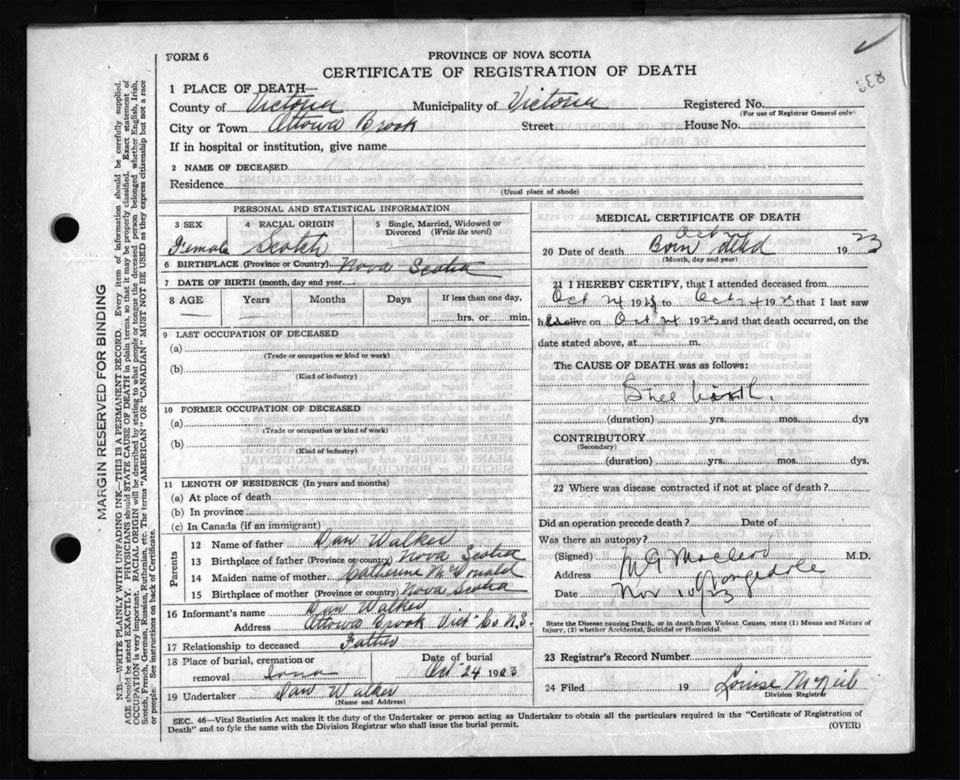 FORM 6
PROVINCE OF NOVA SCOTIA
CERTIFICATE OF REGISTRATION OF DEATH
833
1 PLACE OF DEATH—
County of Victoria Municipality of Victoria Registered No.
(For use of Registrar General only)
City or Town Ottowa Brook Street House No.
If in hospital or institution, give name
2 NAME OF DECEASED
Residence
(Usual place of abode)
PERSONAL AND STATISTICAL INFORMATION
3 SEX 4 RACIAL ORIGIN 5 Single, Married, Widowed or Divorced (Write the word)
Female Scotch
6 BIRTHPLACE (Province or Country) Nova Scotia
7 DATE OF BIRTH (month, day and year)
8 AGE Years Months Days If less than one day,
hrs. or min.
9 LAST OCCUPATION OF DECEASED
(a)
(Trade or occupation or kind or work)
(b)
(Kind of industry)
10 FORMER OCCUPATION OF DECEASED
(a)
(Trade or occupation or kind of work)
(b)
(Kind of industry)
11 LENGTH OF RESIDENCE (In years and months)
(a) At place of death
(b) In province
(c) In Canada (if an immigrant)
Parents
12 Name of father Dan Walker
13 Birthplace of father (Province or country) Nova Scotia
14 Maiden name of mother Catherine McDonald
15 Birthplace of mother (Province or country) Nova Scotia
16 Informant's name Dan Walker
Address Ottowa Brook Vict Co N.S.
17 Relationship to deceased Father
18 Place of burial, cremation or removal Iona Date of burial Oct 24 1923
19 Undertaker Dan Walker
(Name and Address)
MEDICAL CERTIFICATE OF DEATH
Oct 24
20 Date of death Born dead 1923
(Month, day and year)
21 I HEREBY CERTIFY, that I attended deceased from
Oct 24 1923 to Oct 24 1923 that I last saw
h alive on Oct 24 1923 and that death occurred, on the
date stated above, at m.
The CAUSE OF DEATH was as follows:
Still birth.
(duration) yrs. mos. dys
CONTRIBUTORY
(Secondary)
(duration) yrs. mos. dys.
22 Where was disease contracted if not at place of death?
Did an operation precede death? Date of
Was there an autopsy?
(Signed) M G Macleod M.D.
Address
Date Nov 10/23
State the Disease causing Death, or in death from Violent Causes, state (1) Means and Nature of
Injury, (2) whether Accidental, Suicidal or Homicidal.
23 Registrar's Record Number
24 Filed 19 Louise McNeil
Division Registrar
SEC. 46—Vital Statistics Act makes it the duty of the Undertaker or person acting as Undertaker to obtain all the particulars required in the "Certificate of Registration of
Death" and to fyle the same with the Division Registrar who shall issue the burial permit.
(OVER)
MARGIN RESERVED FOR BINDING
N.B.—WRITE PLAINLY WITH UNFADING INK—THIS IS A PERMANENT RECORD. Every item of information should be carefully supplied.
AGE should be stated EXACTLY. PHYSICIANS should STATE CAUSE OF DEATH in plain terms, so that it may be properly classified. Exact statement of
OCCUPATION is very important. RACIAL ORIGIN will be described by stating to what people or tongue the deceased person belonged whether English, Irish,
Scotch, French, German, Russian, Ruthenian, etc. The terms "AMERICAN" OR "CANADIAN" MUST NOT BE USED as they express citizenship but not a race
or people. See instructions on back of Certificate.